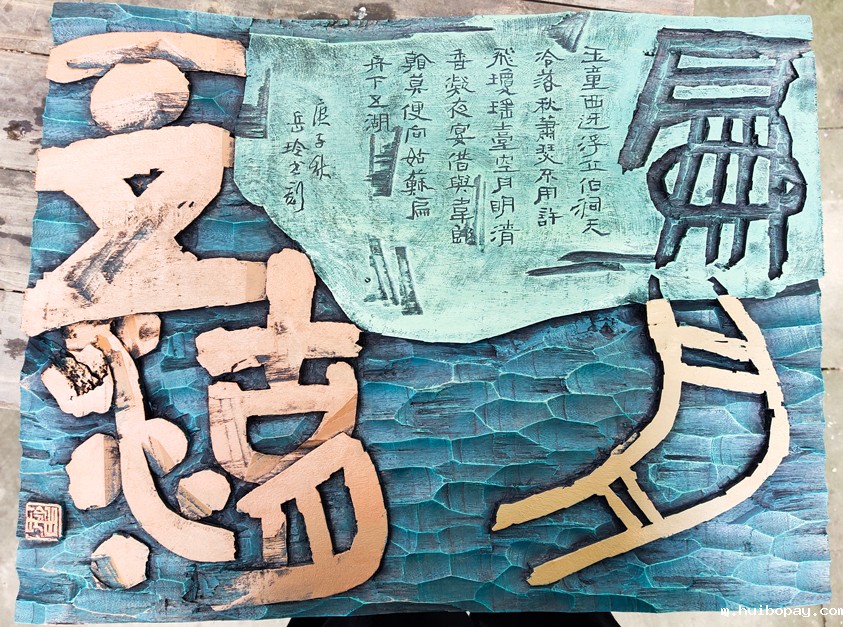 扁舟
五湖
玉童西迓浮丘伯洞天
冷落秋蕭瑟不用許
飛瓊瑤臺空月明清
香凝夜宴借與韋郎
莫便向姑蘇扁
舟下五湖
庚子秋
岳玲书刻
m.huibopay.com